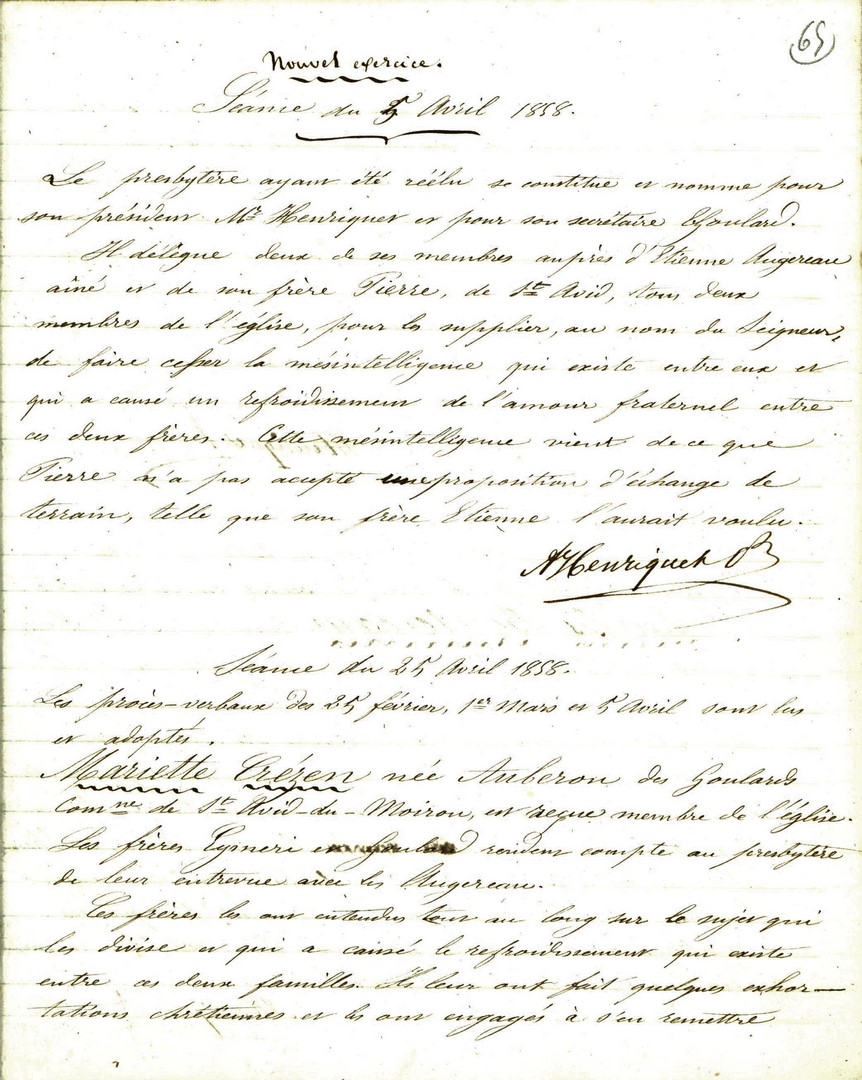 65
Nouvel exercice.
Séance du 5 Avril 1858.
Le presbytère ayant été réélu se constitue et nomme pour
son président Mr Henriquet et pour son secrétaire EGoulard.
Il délègue deux de ses membres auprès d'Etienne Augereau
aîné et de son frère Pierre, de St Avid, tous deux
membres de l'église, pour les supplier, au nom du Seigneur,
de faire cesser la mésintelligence qui existe entre eux et
qui a causé un refroidissement de l'amour fraternel entre
ces deux frères. Cette mésintelligence vient de ce que
Pierre n'a pas accepté une proposition d'échange de
terrain, telle que son frère Etienne l'aurait voulu.
AHenriquet
Séance du 25 Avril 1858.
Les procès-verbaux des 25 février, 1er Mars et 5 Avril sont lus
et adoptés.
Mariette Crézen née Auberon des Goulards
Comne de St Avid-du-Moiron, est reçue membre de l'église.
Les frères Eymeri et Goulard rendent compte au presbytère
de leur entrevue avec les Augereau.
Ces frères les ont entendus tout au long sur le sujet qui
les divise et qui a causé le refroidissement qui existe
entre ces deux familles. Ils leur ont fait quelques exhor-
tations chrétiennes et les ont engagés à s'en remettre